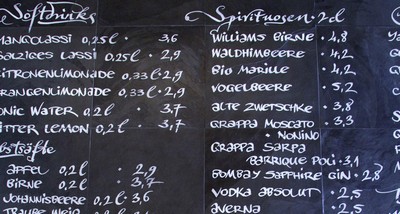 Softdrinks
MANGOLASSI 0,25l · 3,6
SALZIGES LASSI 0,25l · 2,9
ZITRONENLIMONADE 0,33l · 2,9
ORANGENLIMONADE 0,33l · 2,9
TONIC WATER 0,2l · 3,7
BITTER LEMON 0,2l · 3,7
Obstsäfte
APFEL 0,2l · 2,9
BIRNE 0,2l · 3,7
JOHANNISBEERE 0,2l · 3,6
TRAUBE WEIß
Spirituosen 2cl
WILLIAMS BIRNE · 4,8
WALDHIMBEERE · 4,2
BIO MARILLE · 4,2
VOGELBEERE · 5,2
ALTE ZWETSCHKE · 3,8
GRAPPA MOSCATO · 3,3
NONINO
GRAPPA SARPA
BARRIQUE POLI · 3,1
BOMBAY SAPPHIRE GIN · 2,8
VODKA ABSOLUT · 2,5
AVERNA · 2,5